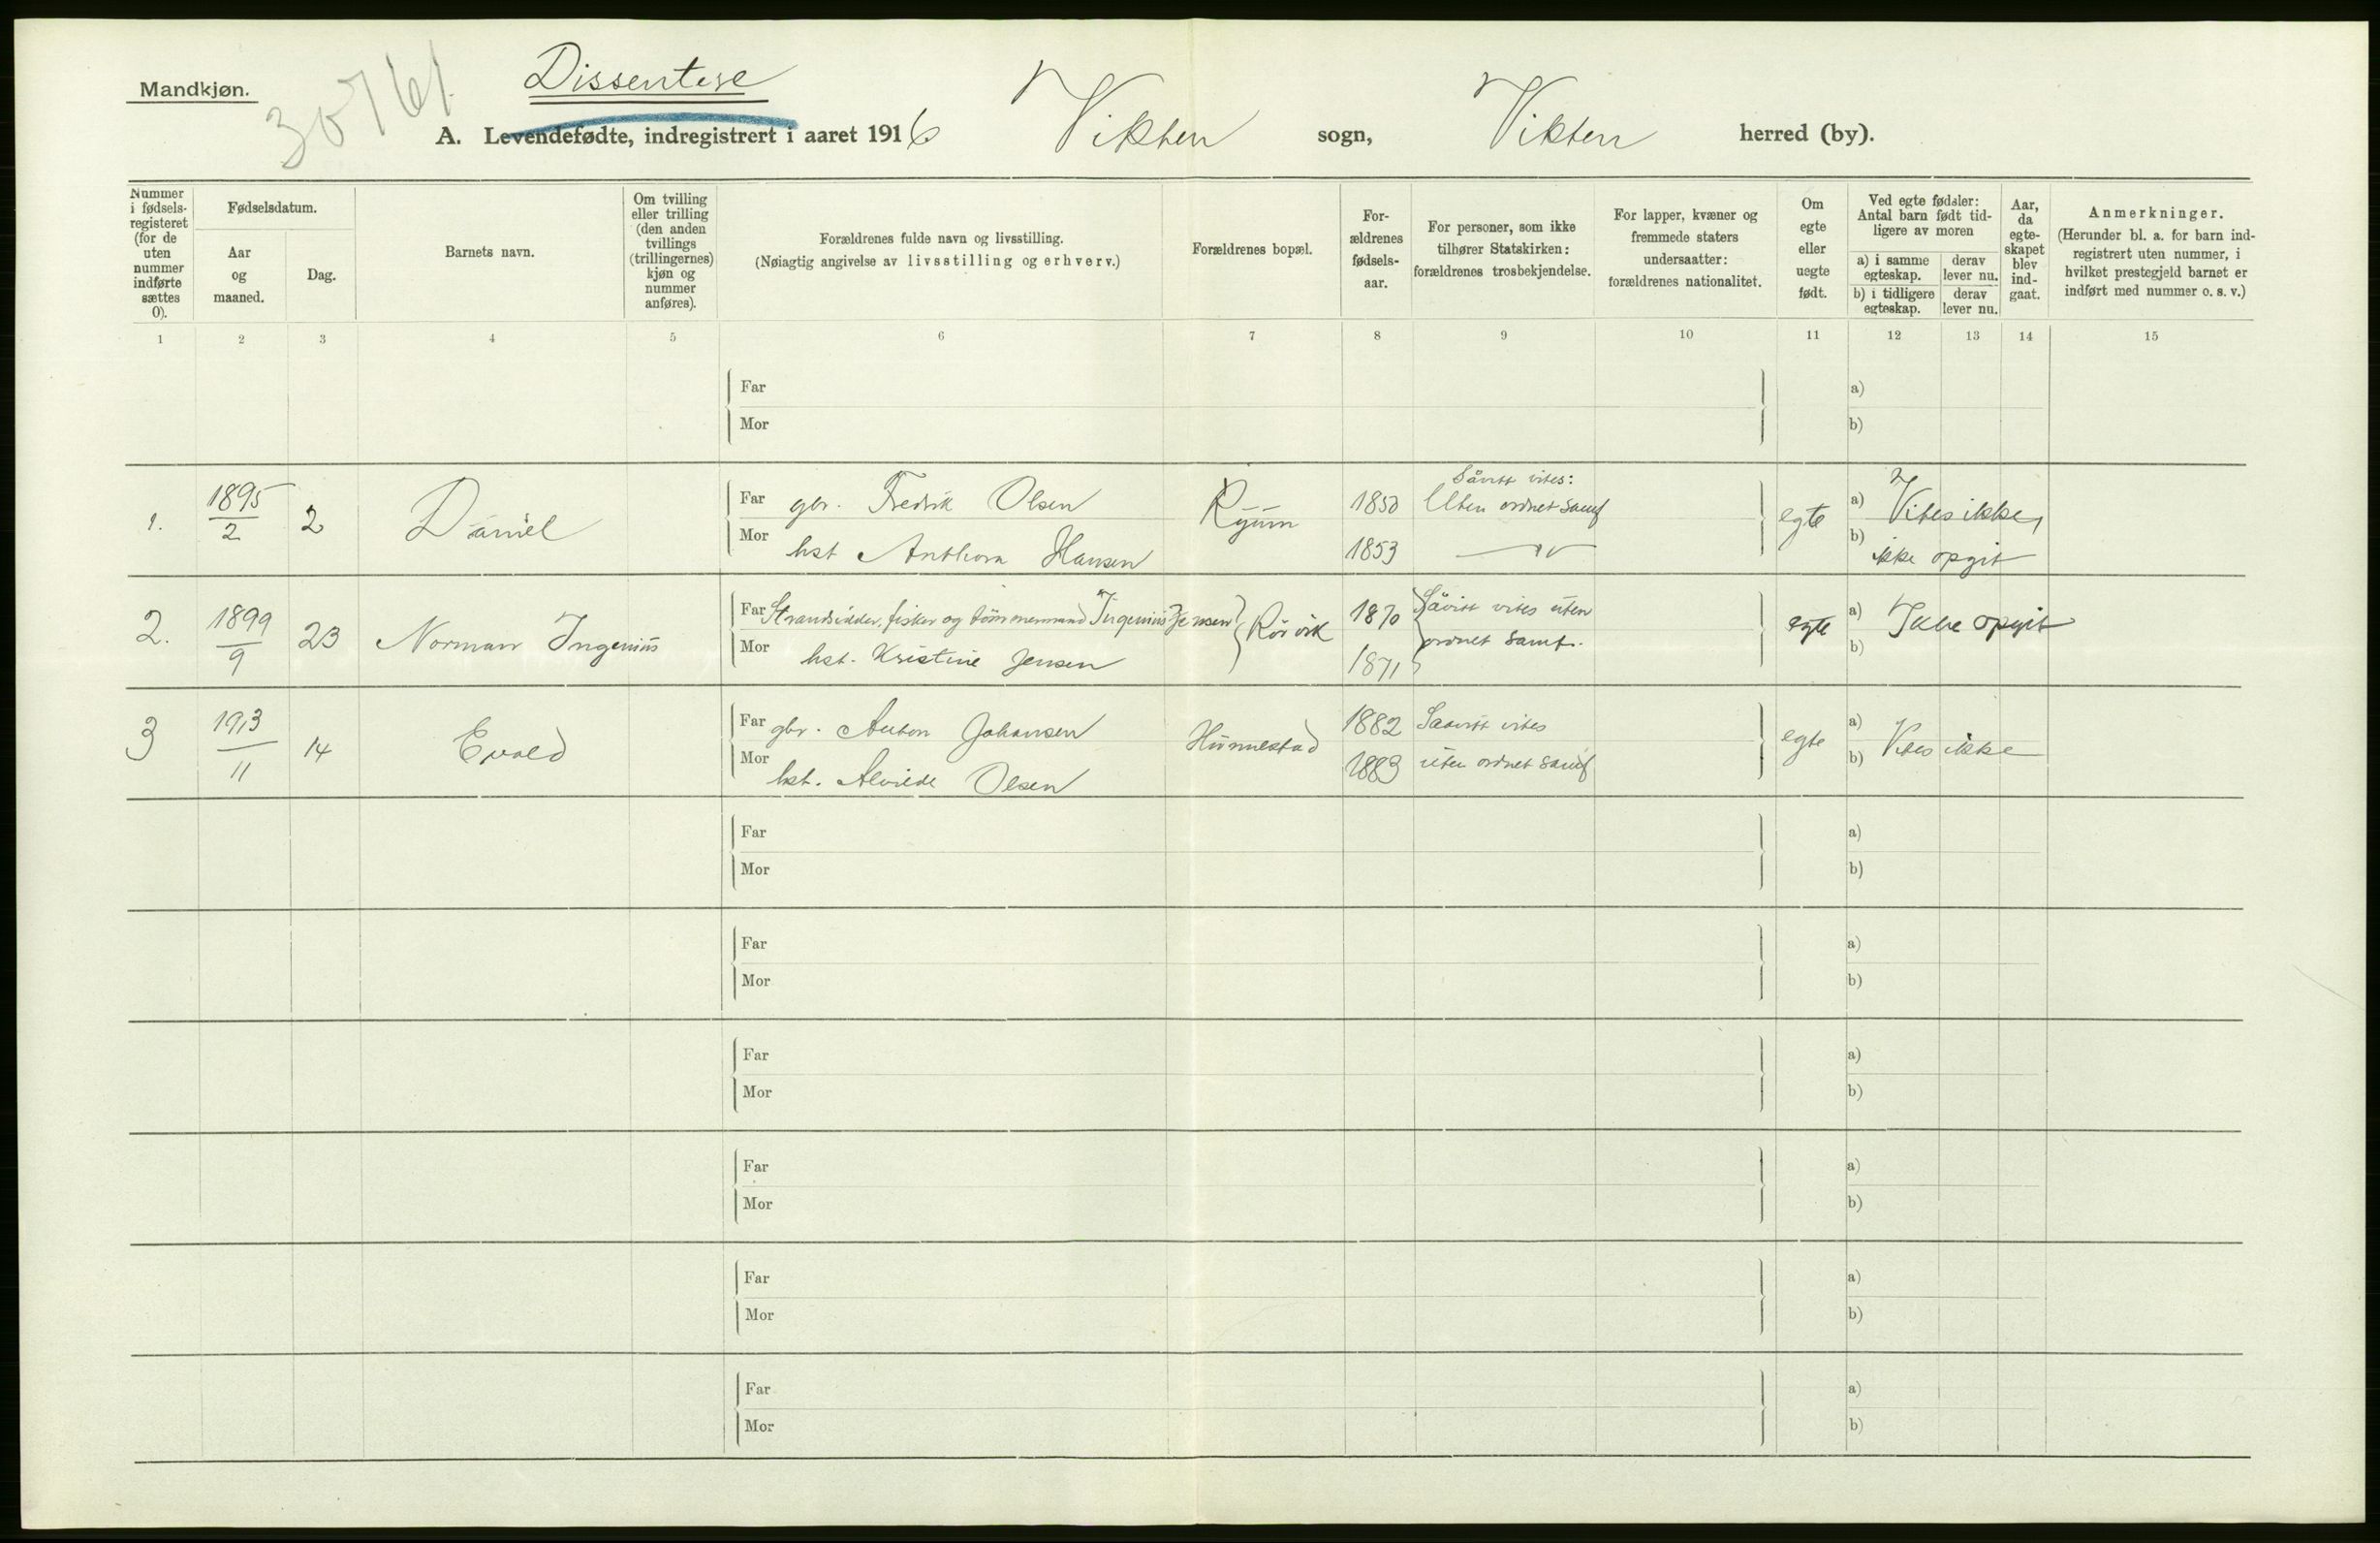 Mandkjøn.
30761
Dissentere
A. Levendefødte, indregistrert i aaret 1916 Vikten sogn, Vikten herred (by).
Nummer i fødsels-registeret (for de uten nummer indførte sættes 0).
Fødselsdatum.
Aar og maaned.
Dag.
Barnets navn.
Om tvilling eller trilling (den anden tvillings (trillingernes) kjøn og nummer anføres).
Forældrenes fulde navn og livsstilling.
(Nøiagtig angivelse av livsstilling og erhverv.)
Forældrenes bopæl.
For-ældrenes fødsels-aar.
For personer, som ikke tilhører Statskirken: forældrenes trosbekjendelse.
For lapper, kvæner og fremmede staters undersaatter: forældrenes nationalitet.
Om egte eller uegte født.
Ved egte fødsler: Antal barn født tid-ligere av moren
a) i samme egteskap.
derav lever nu.
b) i tidligere egteskap.
derav lever nu.
Aar, da egte-skapet blev ind-gaat.
Anmerkninger.
(Herunder bl. a. for barn ind-registrert uten nummer, i hvilket prestegjeld barnet er indført med nummer o. s. v.)
1 2 3 4 5 6 7 8 9 10 11 12 13 14 15
Far a)
Mor b)
Såvitt vites:
1. 1895/2 2 Daniel Far gbr. Fredrik Olsen Ryum 1850 Uten ordnet samf egte a) Vites ikke,
Mor hst Anthora Hansen 1853 — " — b) ikke opgit
2. 1899/9 23 Norman Ingenius Far Strandsidder, fisker og tömmermand Ingenius Jensen Rörvik 1870 Såvitt vites uten egte a) Ikke opgit
Mor hst. Kristine Jensen 1871 ordnet samf. b)
3 1913/11 14 Evald Far gbr. Anton Johansen Hunnestad 1882 Saavitt vites egte a) Vites ikke
Mor hst. Alvilde Olsen 1883 uten ordnet samf b)
Far a)
Mor b)
Far a)
Mor b)
Far a)
Mor b)
Far a)
Mor b)
Far a)
Mor b)
Far a)
Mor b)